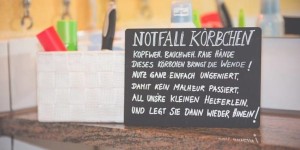 NOTFALL KÖRBCHEN
KOPFWEH, BAUCHWEH, RAUE HÄNDE
DIESES KÖRBCHEN BRINGT DIE WENDE!
NUTZE GANZ EINFACH UNGENIERT,
DAMIT KEIN MALHEUR PASSIERT,
ALL UNSRE KLEINEN HELFERLEIN,
UND LEGT SIE DANN WIEDER HINEIN!